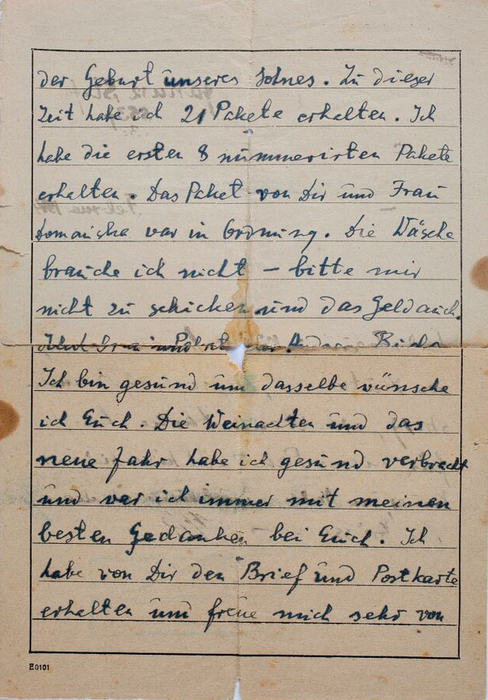 der Geburt unseres Sohnes. Zu dieser
Zeit habe ich 21 Pakete erhalten. Ich
habe die ersten 8 nummerirten Pakete
erhalten. Das Paket von Dir und Frau
Domanska war in Ordnung. Die Wäsche
brauche ich nicht – bitte mir
nicht zu schicken und das Geld auch.
Ich bin gesund und dasselbe wünsche
ich Euch. Die Weinachten und das
neue Jahr habe ich gesund verbracht
und war ich immer mit meinen
besten Gedanken bei Euch. Ich
habe von Dir den Brief und Postkarte
erhalten und freue mich sehr von
E0101